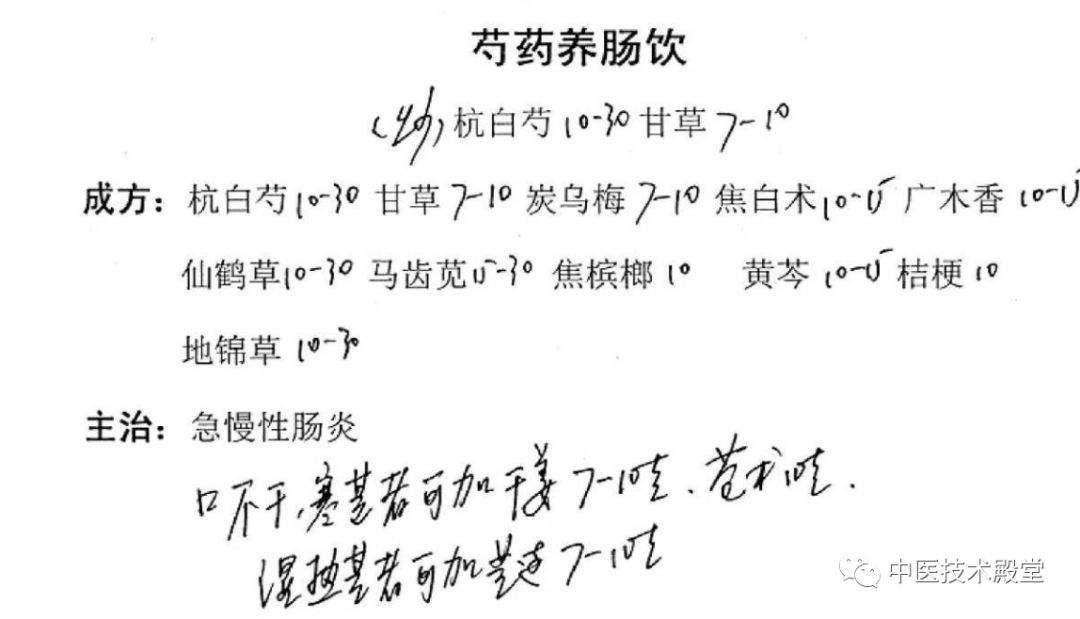 芍药养肠饮
(炒)杭白芍 10-30 甘草 7-10
成方：杭白芍 10-30 甘草 7-10 炭乌梅 7-10 焦白术 10-15 广木香 10-15
仙鹤草 10-30 马齿苋 15-30 焦槟榔 10 黄芩 10-15 桔梗 10
地锦草 10-30
主治：急慢性肠炎
口不干,寒甚者可加干姜 7-10克、苍术10克.
湿热甚者可加黄连 7-10克
中医技术殿堂